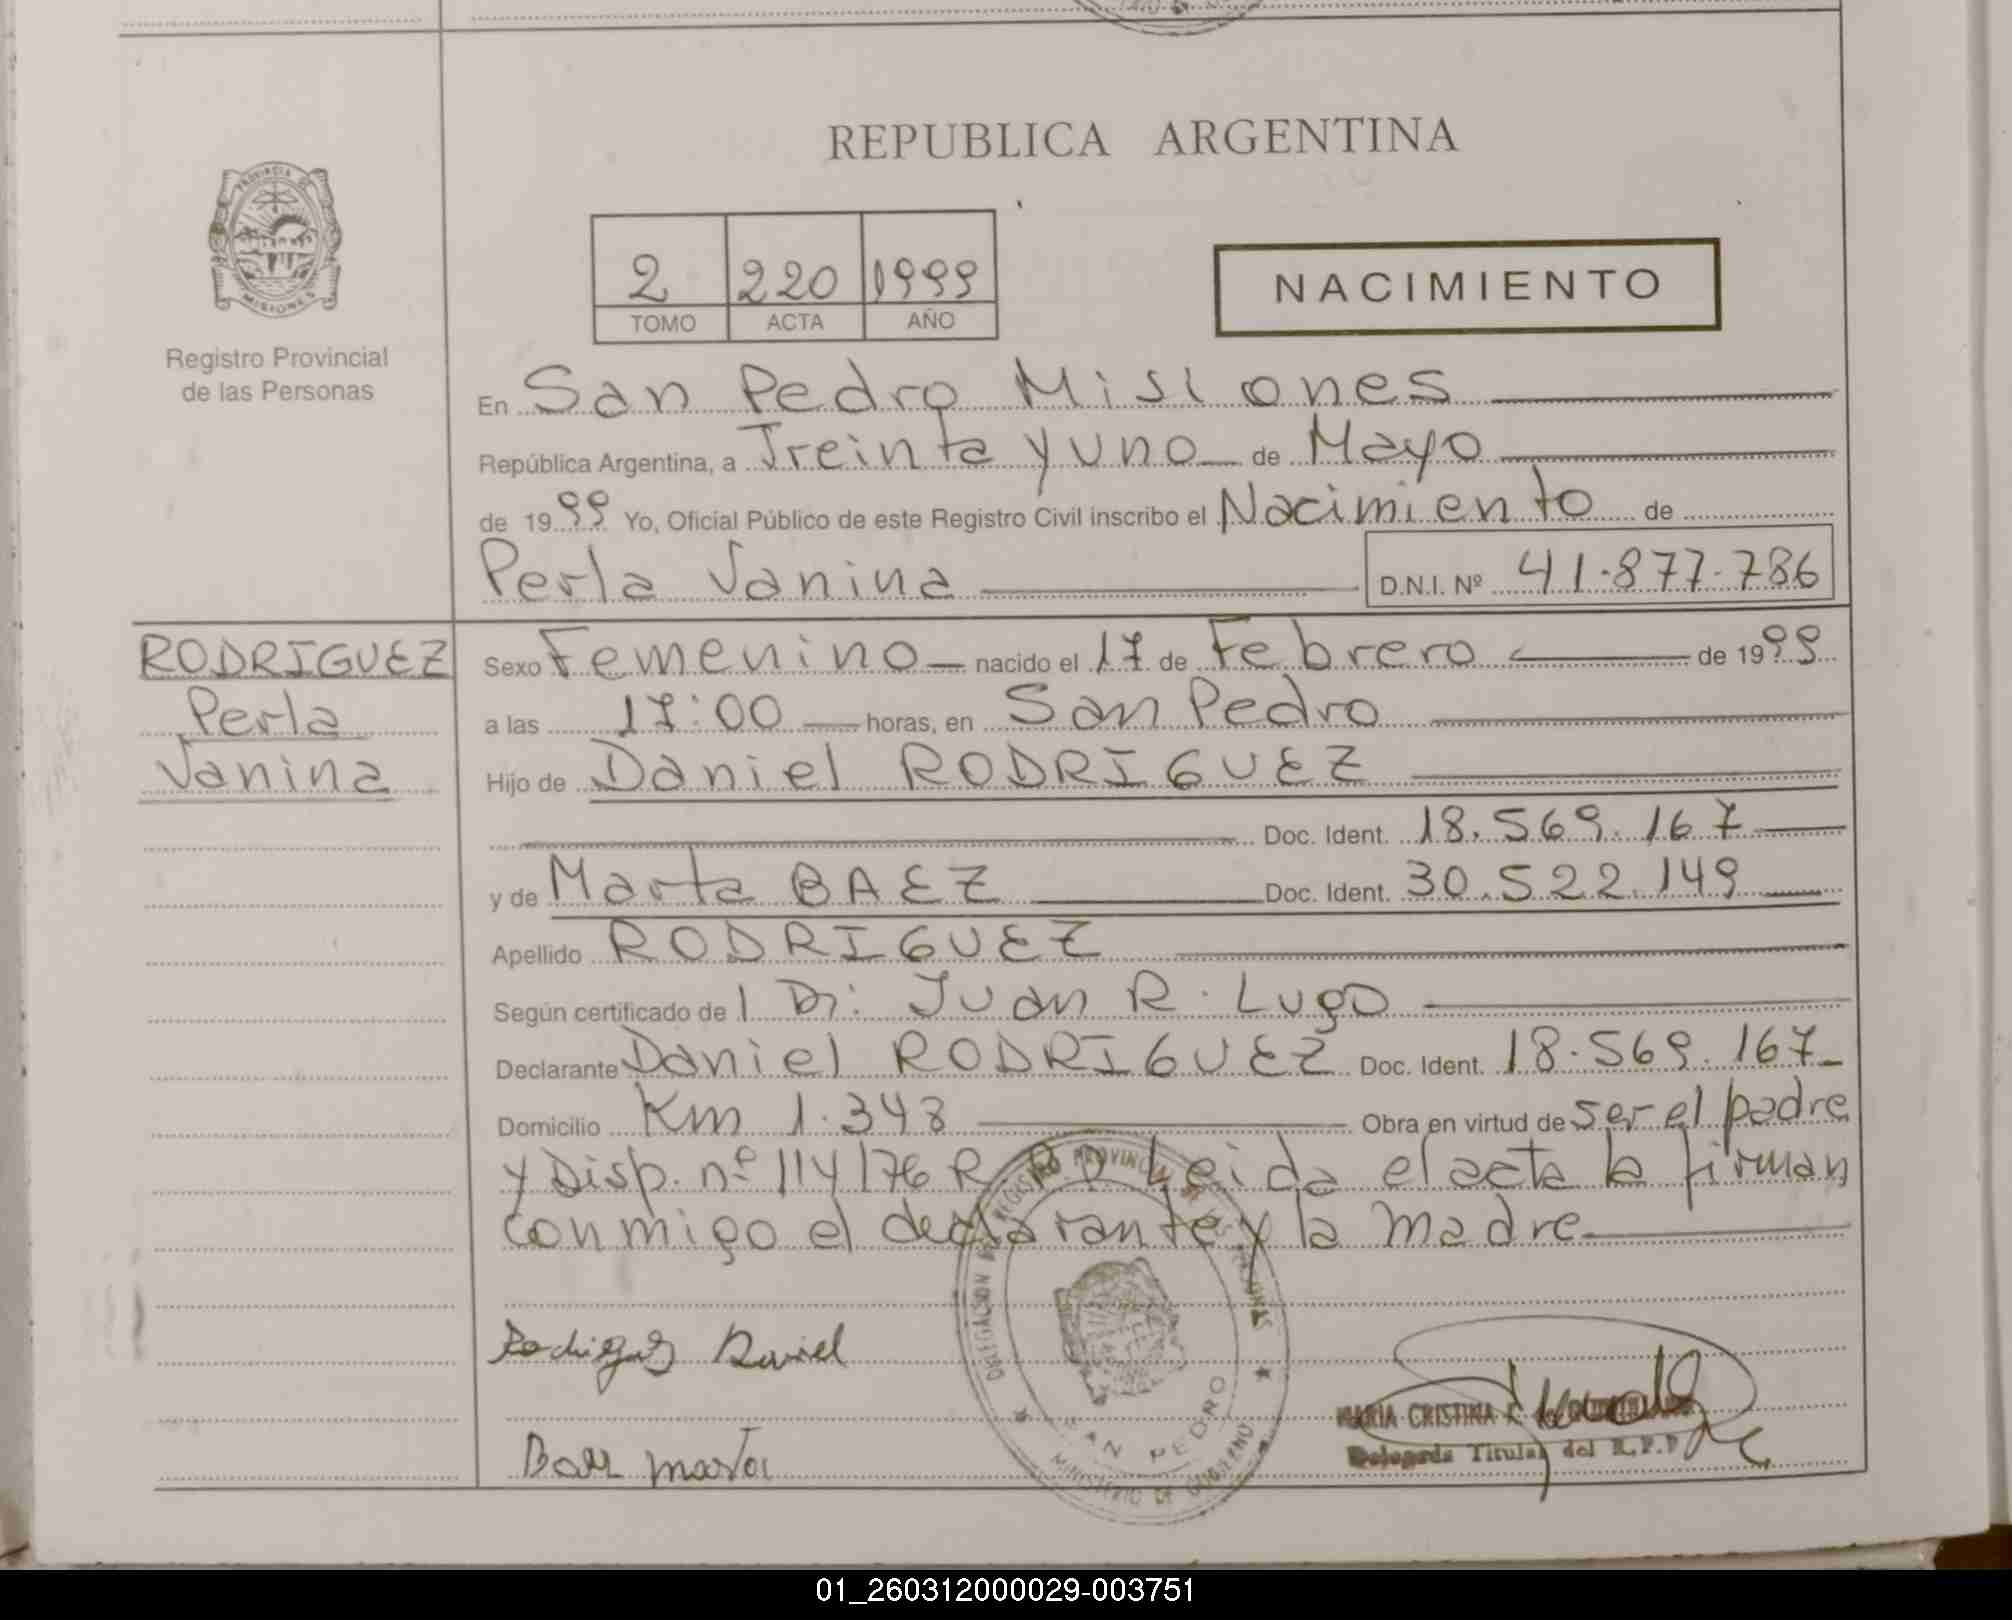 REPUBLICA ARGENTINA
PROVINCIA DE MISIONES
Registro Provincial
de las Personas
2 220 1999
TOMO ACTA AÑO
NACIMIENTO
En San Pedro Misiones
República Argentina, a Treinta y uno de Mayo
de 1999 Yo, Oficial Público de este Registro Civil inscribo el Nacimiento de
Perla Vanina D.N.I. Nº 41.877.786
RODRIGUEZ
Perla
Vanina
Sexo Femenino nacido el 17 de Febrero de 1999
a las 17:00 horas, en San Pedro
Hijo de Daniel RODRIGUEZ
Doc. Ident. 18.569.167
y de Marta BAEZ Doc. Ident. 30.522.149
Apellido RODRIGUEZ
Según certificado de l Dr: Juan R. Lugo
Declarante Daniel RODRIGUEZ Doc. Ident. 18.569.167
Domicilio Km 1.348 Obra en virtud de ser el padre
y Disp. nº 114/76 R.P.P Leida el acta la firman
conmigo el declarante y la madre
DELEGACION DEL REGISTRO PROVINCIAL DE LAS PERSONAS
SAN PEDRO
MINISTERIO DE GOBIERNO
Rodriguez Daniel
MARIA CRISTINA
Delegada Titular del R.P.P
Baez marta
01_260312000029-003751